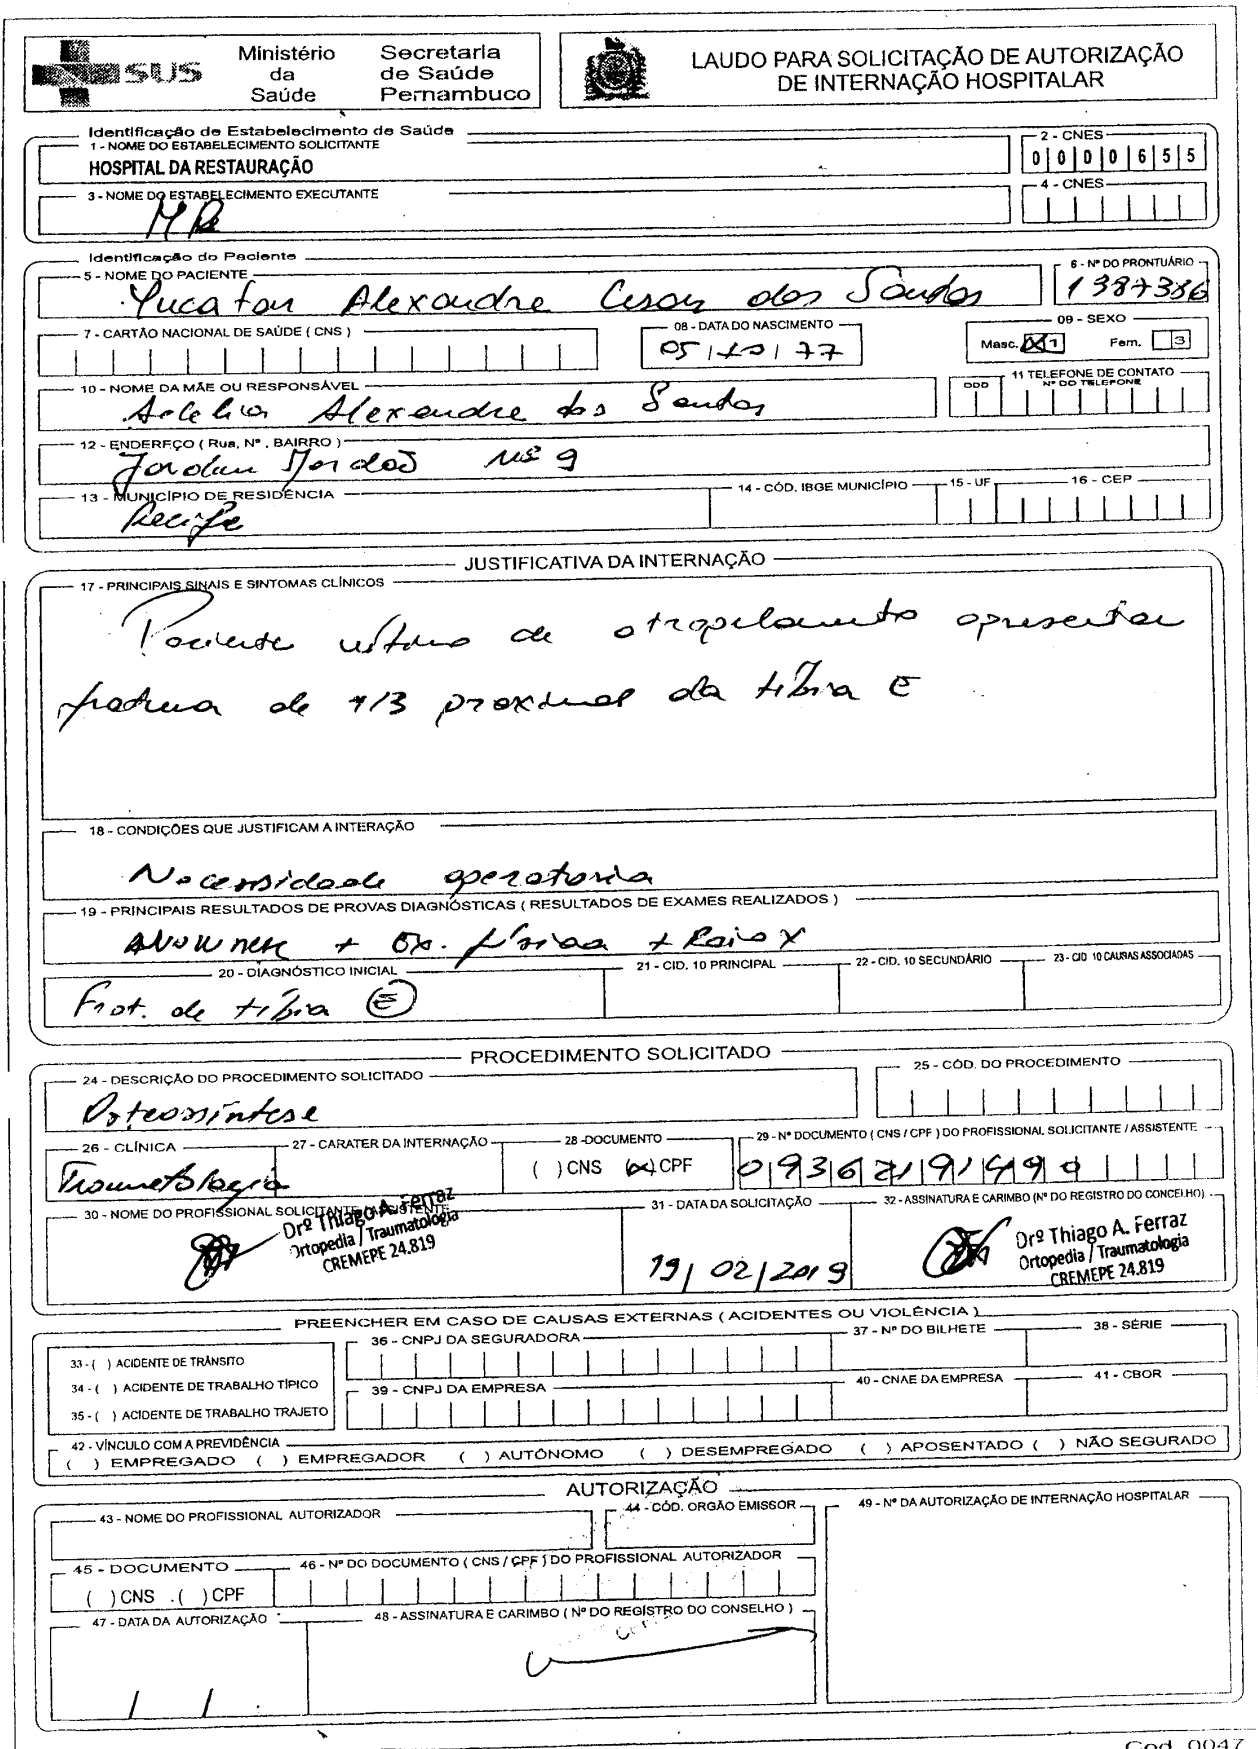 SUS
Ministério da Saúde
Secretaria de Saúde Pernambuco
LAUDO PARA SOLICITAÇÃO DE AUTORIZAÇÃO
DE INTERNAÇÃO HOSPITALAR
Identificação de Estabelecimento de Saúde
1 - NOME DO ESTABELECIMENTO SOLICITANTE
HOSPITAL DA RESTAURAÇÃO
2 - CNES
0 0 0 0 6 5 5
3 - NOME DO ESTABELECIMENTO EXECUTANTE
HR
4 - CNES
Identificação do Paciente
5 - NOME DO PACIENTE
Yucatan Alexandre Cesar dos Santos
6 - Nº DO PRONTUÁRIO
1387386
7 - CARTÃO NACIONAL DE SAÚDE ( CNS )
08 - DATA DO NASCIMENTO
05/10/77
09 - SEXO
Masc. 1 Fem. 3
10 - NOME DA MÃE OU RESPONSÁVEL
Alexandre dos Santos
11 TELEFONE DE CONTATO
DDD Nº DO TELEFONE
12 - ENDEREÇO ( Rua, Nº , BAIRRO )
Jordão Nº 9
13 - MUNICÍPIO DE RESIDÊNCIA
Recife
14 - CÓD. IBGE MUNICÍPIO
15 - UF
16 - CEP
JUSTIFICATIVA DA INTERNAÇÃO
17 - PRINCIPAIS SINAIS E SINTOMAS CLÍNICOS
Paciente vítima de atropelamento apresentar
fratura de 1/3 proximal da tíbia E
18 - CONDIÇÕES QUE JUSTIFICAM A INTERAÇÃO
Necessidade operatoria
19 - PRINCIPAIS RESULTADOS DE PROVAS DIAGNÓSTICAS ( RESULTADOS DE EXAMES REALIZADOS )
Anamnese + Ex. físico + Raio X
20 - DIAGNÓSTICO INICIAL
Frat. de tíbia E
21 - CID. 10 PRINCIPAL
22 - CID. 10 SECUNDÁRIO
23 - CID 10 CAUSAS ASSOCIADAS
PROCEDIMENTO SOLICITADO
24 - DESCRIÇÃO DO PROCEDIMENTO SOLICITADO
Osteossíntese
25 - CÓD. DO PROCEDIMENTO
26 - CLÍNICA
Traumatologia
27 - CARATER DA INTERNAÇÃO
28 -DOCUMENTO
( ) CNS (x) CPF
29 - Nº DOCUMENTO ( CNS / CPF ) DO PROFISSIONAL SOLICITANTE / ASSISTENTE
0 9 3 6 2 1 9 1 4 9 0
30 - NOME DO PROFISSIONAL SOLICITANTE / ASSISTENTE
Drº Thiago A. Ferraz
Ortopedia / Traumatologia
CREMEPE 24.819
31 - DATA DA SOLICITAÇÃO
19/02/2019
32 - ASSINATURA E CARIMBO (Nº DO REGISTRO DO CONCELHO)
Drº Thiago A. Ferraz
Ortopedia / Traumatologia
CREMEPE 24.819
PREENCHER EM CASO DE CAUSAS EXTERNAS ( ACIDENTES OU VIOLÊNCIA )
33 - ( ) ACIDENTE DE TRÂNSITO
34 - ( ) ACIDENTE DE TRABALHO TÍPICO
35 - ( ) ACIDENTE DE TRABALHO TRAJETO
36 - CNPJ DA SEGURADORA
37 - Nº DO BILHETE
38 - SÉRIE
39 - CNPJ DA EMPRESA
40 - CNAE DA EMPRESA
41 - CBOR
42 - VÍNCULO COM A PREVIDÊNCIA
( ) EMPREGADO ( ) EMPREGADOR ( ) AUTÔNOMO ( ) DESEMPREGADO ( ) APOSENTADO ( ) NÃO SEGURADO
AUTORIZAÇÃO
43 - NOME DO PROFISSIONAL AUTORIZADOR
44 - CÓD. ORGÃO EMISSOR
49 - Nº DA AUTORIZAÇÃO DE INTERNAÇÃO HOSPITALAR
45 - DOCUMENTO
( ) CNS ( ) CPF
46 - Nº DO DOCUMENTO ( CNS / CPF ) DO PROFISSIONAL AUTORIZADOR
47 - DATA DA AUTORIZAÇÃO
/ /
48 - ASSINATURA E CARIMBO ( Nº DO REGISTRO DO CONSELHO )
Cod. 0047